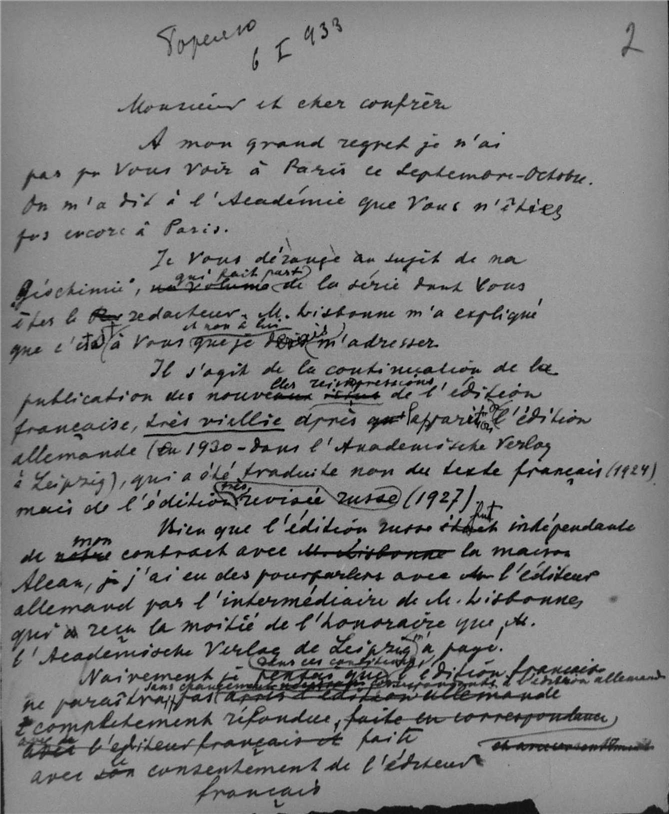 6 I 933
2
Monsieur et cher confrère
A mon grand regret je n'ai
pas pu Vous voir à Paris ce Septembre-Octobre.
On m'a dit à l'Académie que Vous n'êtiez
pas encore à Paris.
Je Vous dérange au sujet de ma
qui fait part
"Géochimie", de la série dont Vous
êtes le redacteur. M. Lisbonne m'a expliqué
et non à lui
que c'est à Vous que je dois m'adresser.
Il s'agit de la continuation de la
des reimpressions
publication des nouveaux de l'édition
française, très viellie après l'apparition de l'édition
allemande (en 1930 - dans l'Akademische Verlag
à Leipzig), qui a été traduite non du texte français (1924)
mais de l'édition revisée russe (1927)
Bien que l'édition russe était fut indépendante
mon
de notre contract avec M. Lisbonne la maison
Alcan, j'ai eu des pourparlers avec l'éditeur
allemand par l'intermédiaire de M. Lisbonne,
qui a reçu la moitié de l'honoraire que
l'Academische Verlag de Leipzig m'a payé.
dans ces conditions
Naivement je pensais que l'édition française
sans changements à l'édition allemande
ne paraîtra pas après l'édition allemande
complètement réfondue, faite en correspondance
avec l'éditeur français et faite
avec le consentement de l'éditeur
français